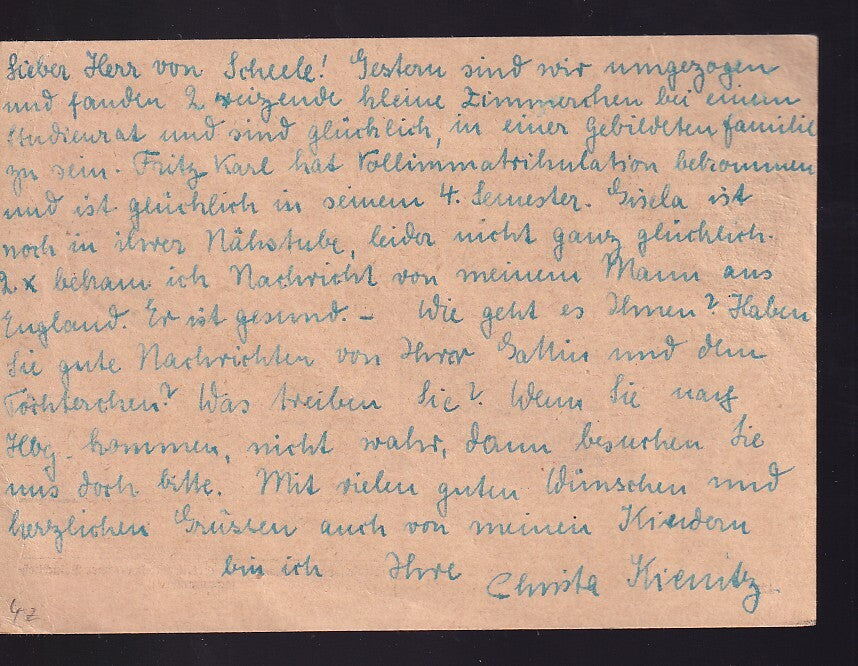 Lieber Herr von Scheele! Gestern sind wir umgezogen
und fanden 2 reizende kleine Zimmerchen bei einem
Studienrat und sind glücklich, in einer gebildeten Familie
zu sein. Fritz Karl hat Vollimmatrikulation bekommen
und ist glücklich in seinem 4. Semester. Gisela ist
noch in ihrer Nähstube, leider nicht ganz glücklich.
2 x bekam ich Nachricht von meinem Mann aus
England. Er ist gesund. – Wie geht es Ihnen? Haben
Sie gute Nachrichten von Ihrer Gattin und dem
Töchterchen? Was treiben Sie? Wenn Sie nach
Hbg. kommen, nicht wahr, dann besuchen Sie
uns doch bitte. Mit vielen guten Wünschen und
herzlichen Grüssen auch von meinen Kindern
bin ich Ihre Christa Kiemitz
4z